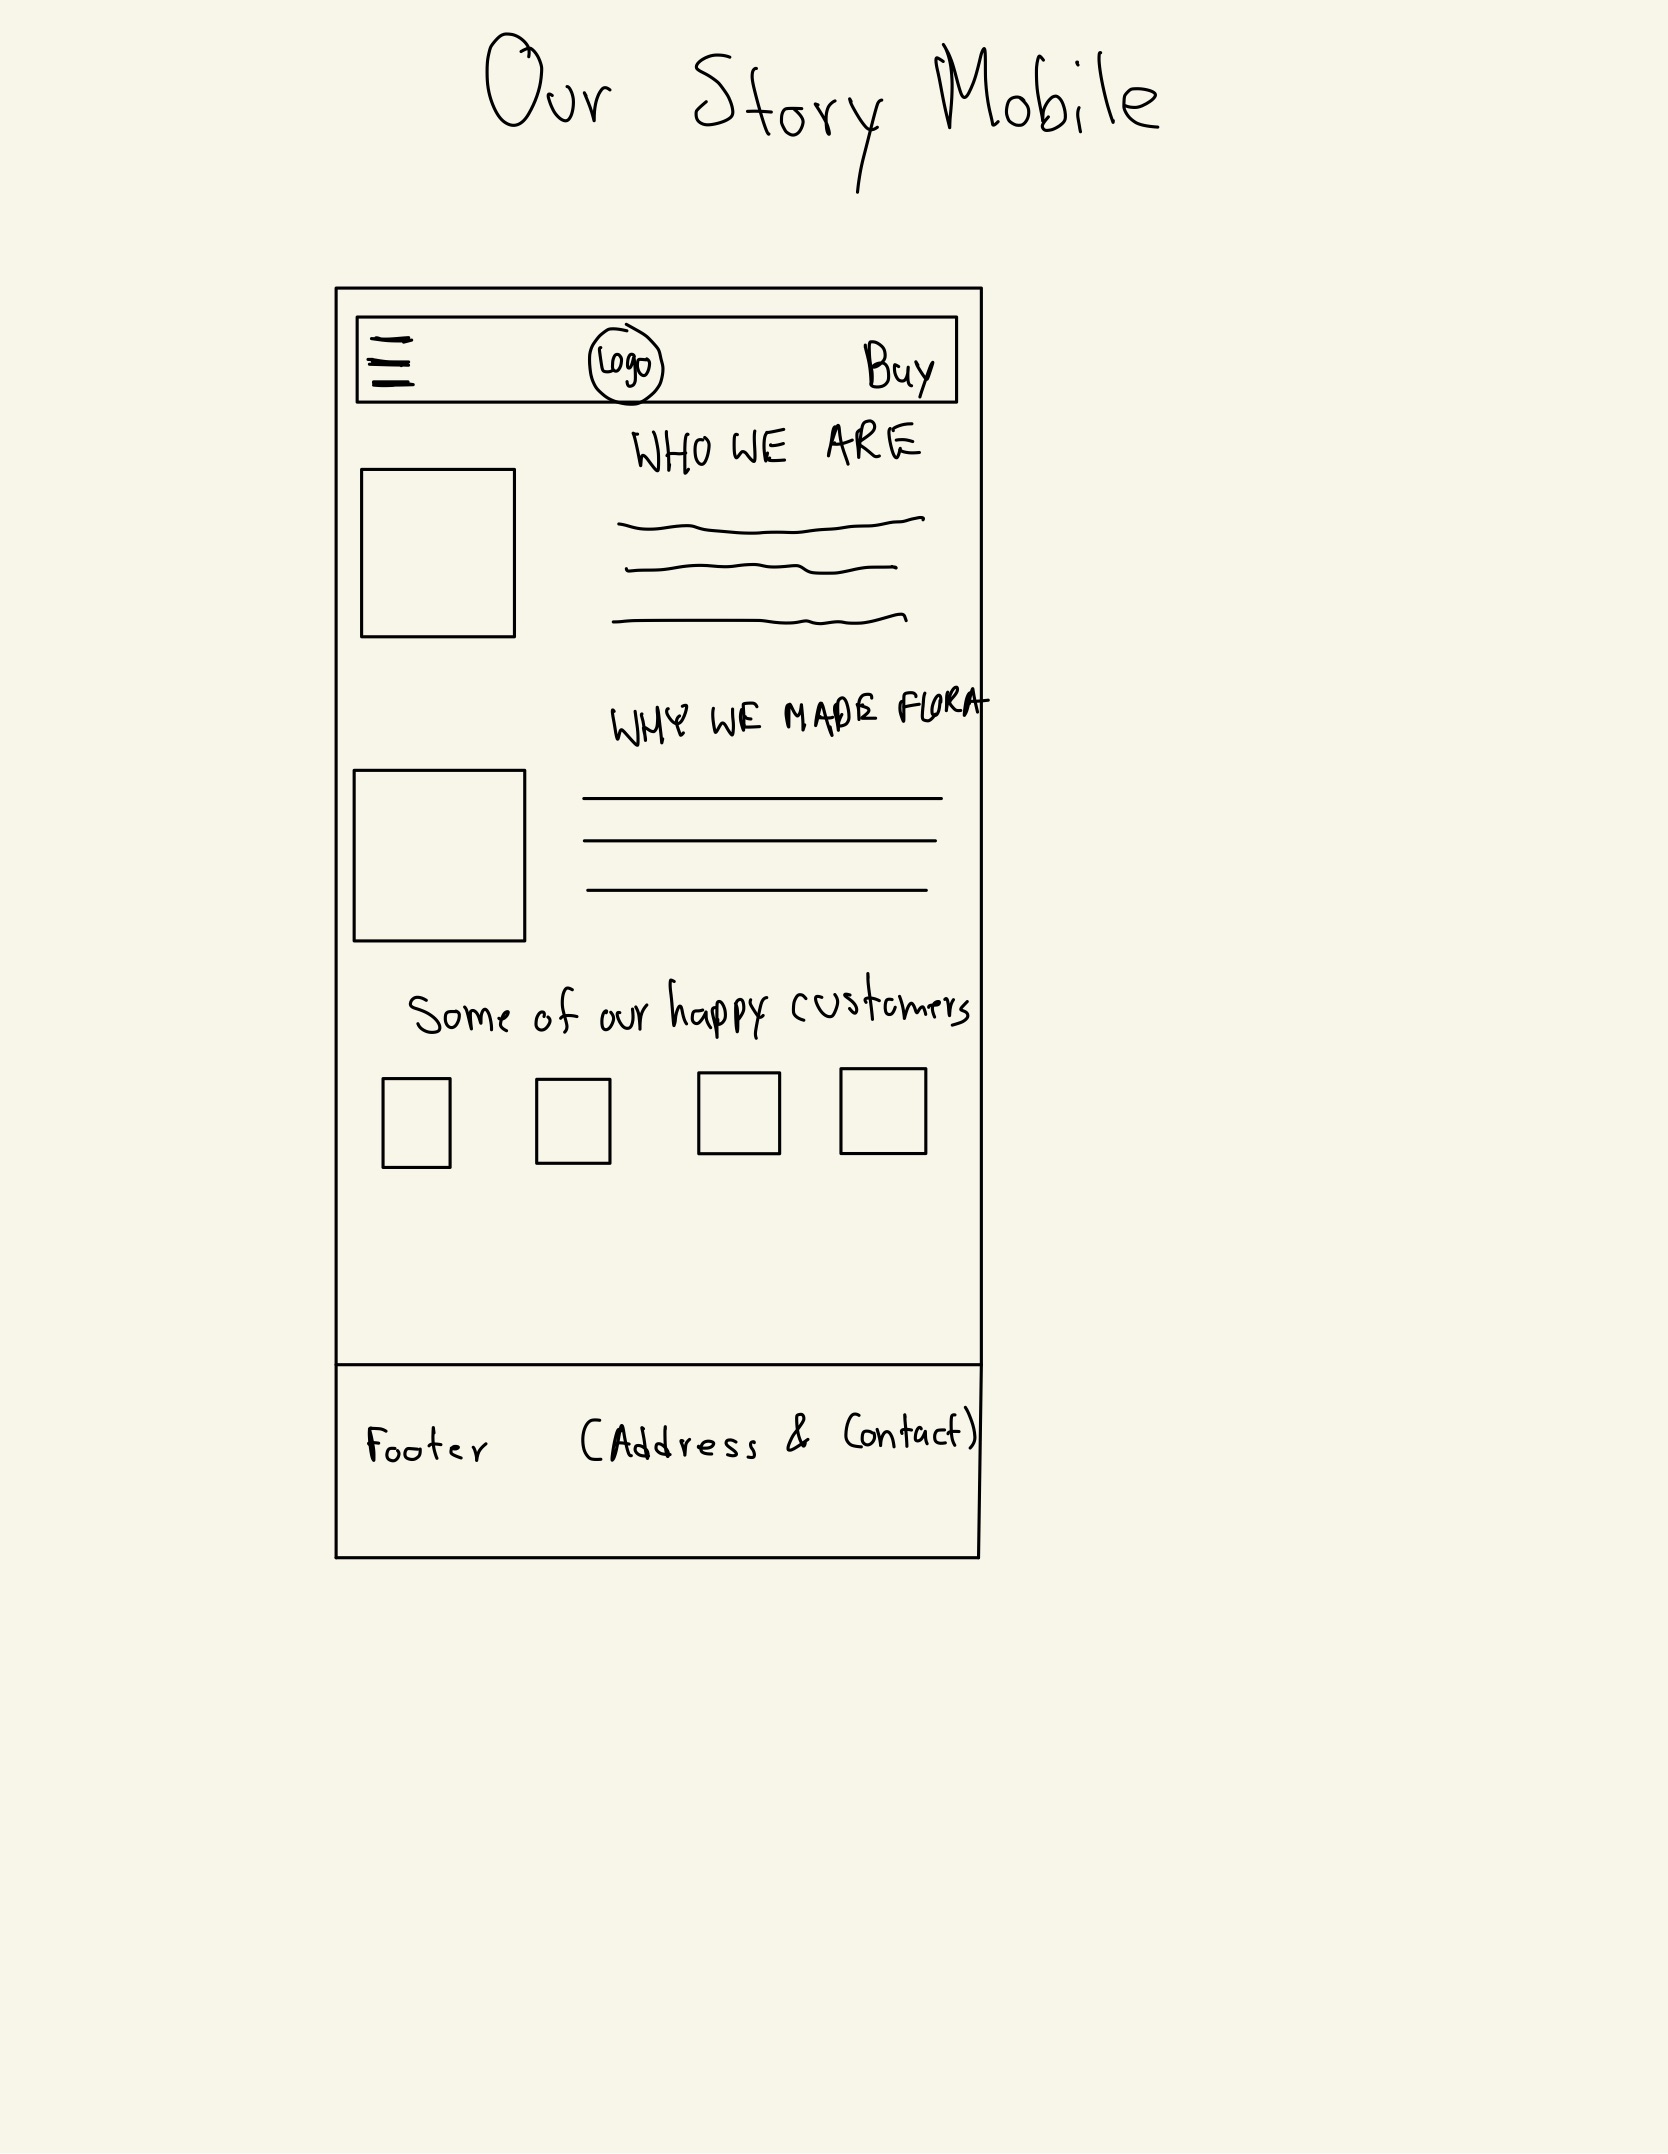 Our Story Mobile
Logo
Buy
WHO WE ARE
WHY WE MADE FLORA
Some of our happy customers
Footer (Address & Contact)